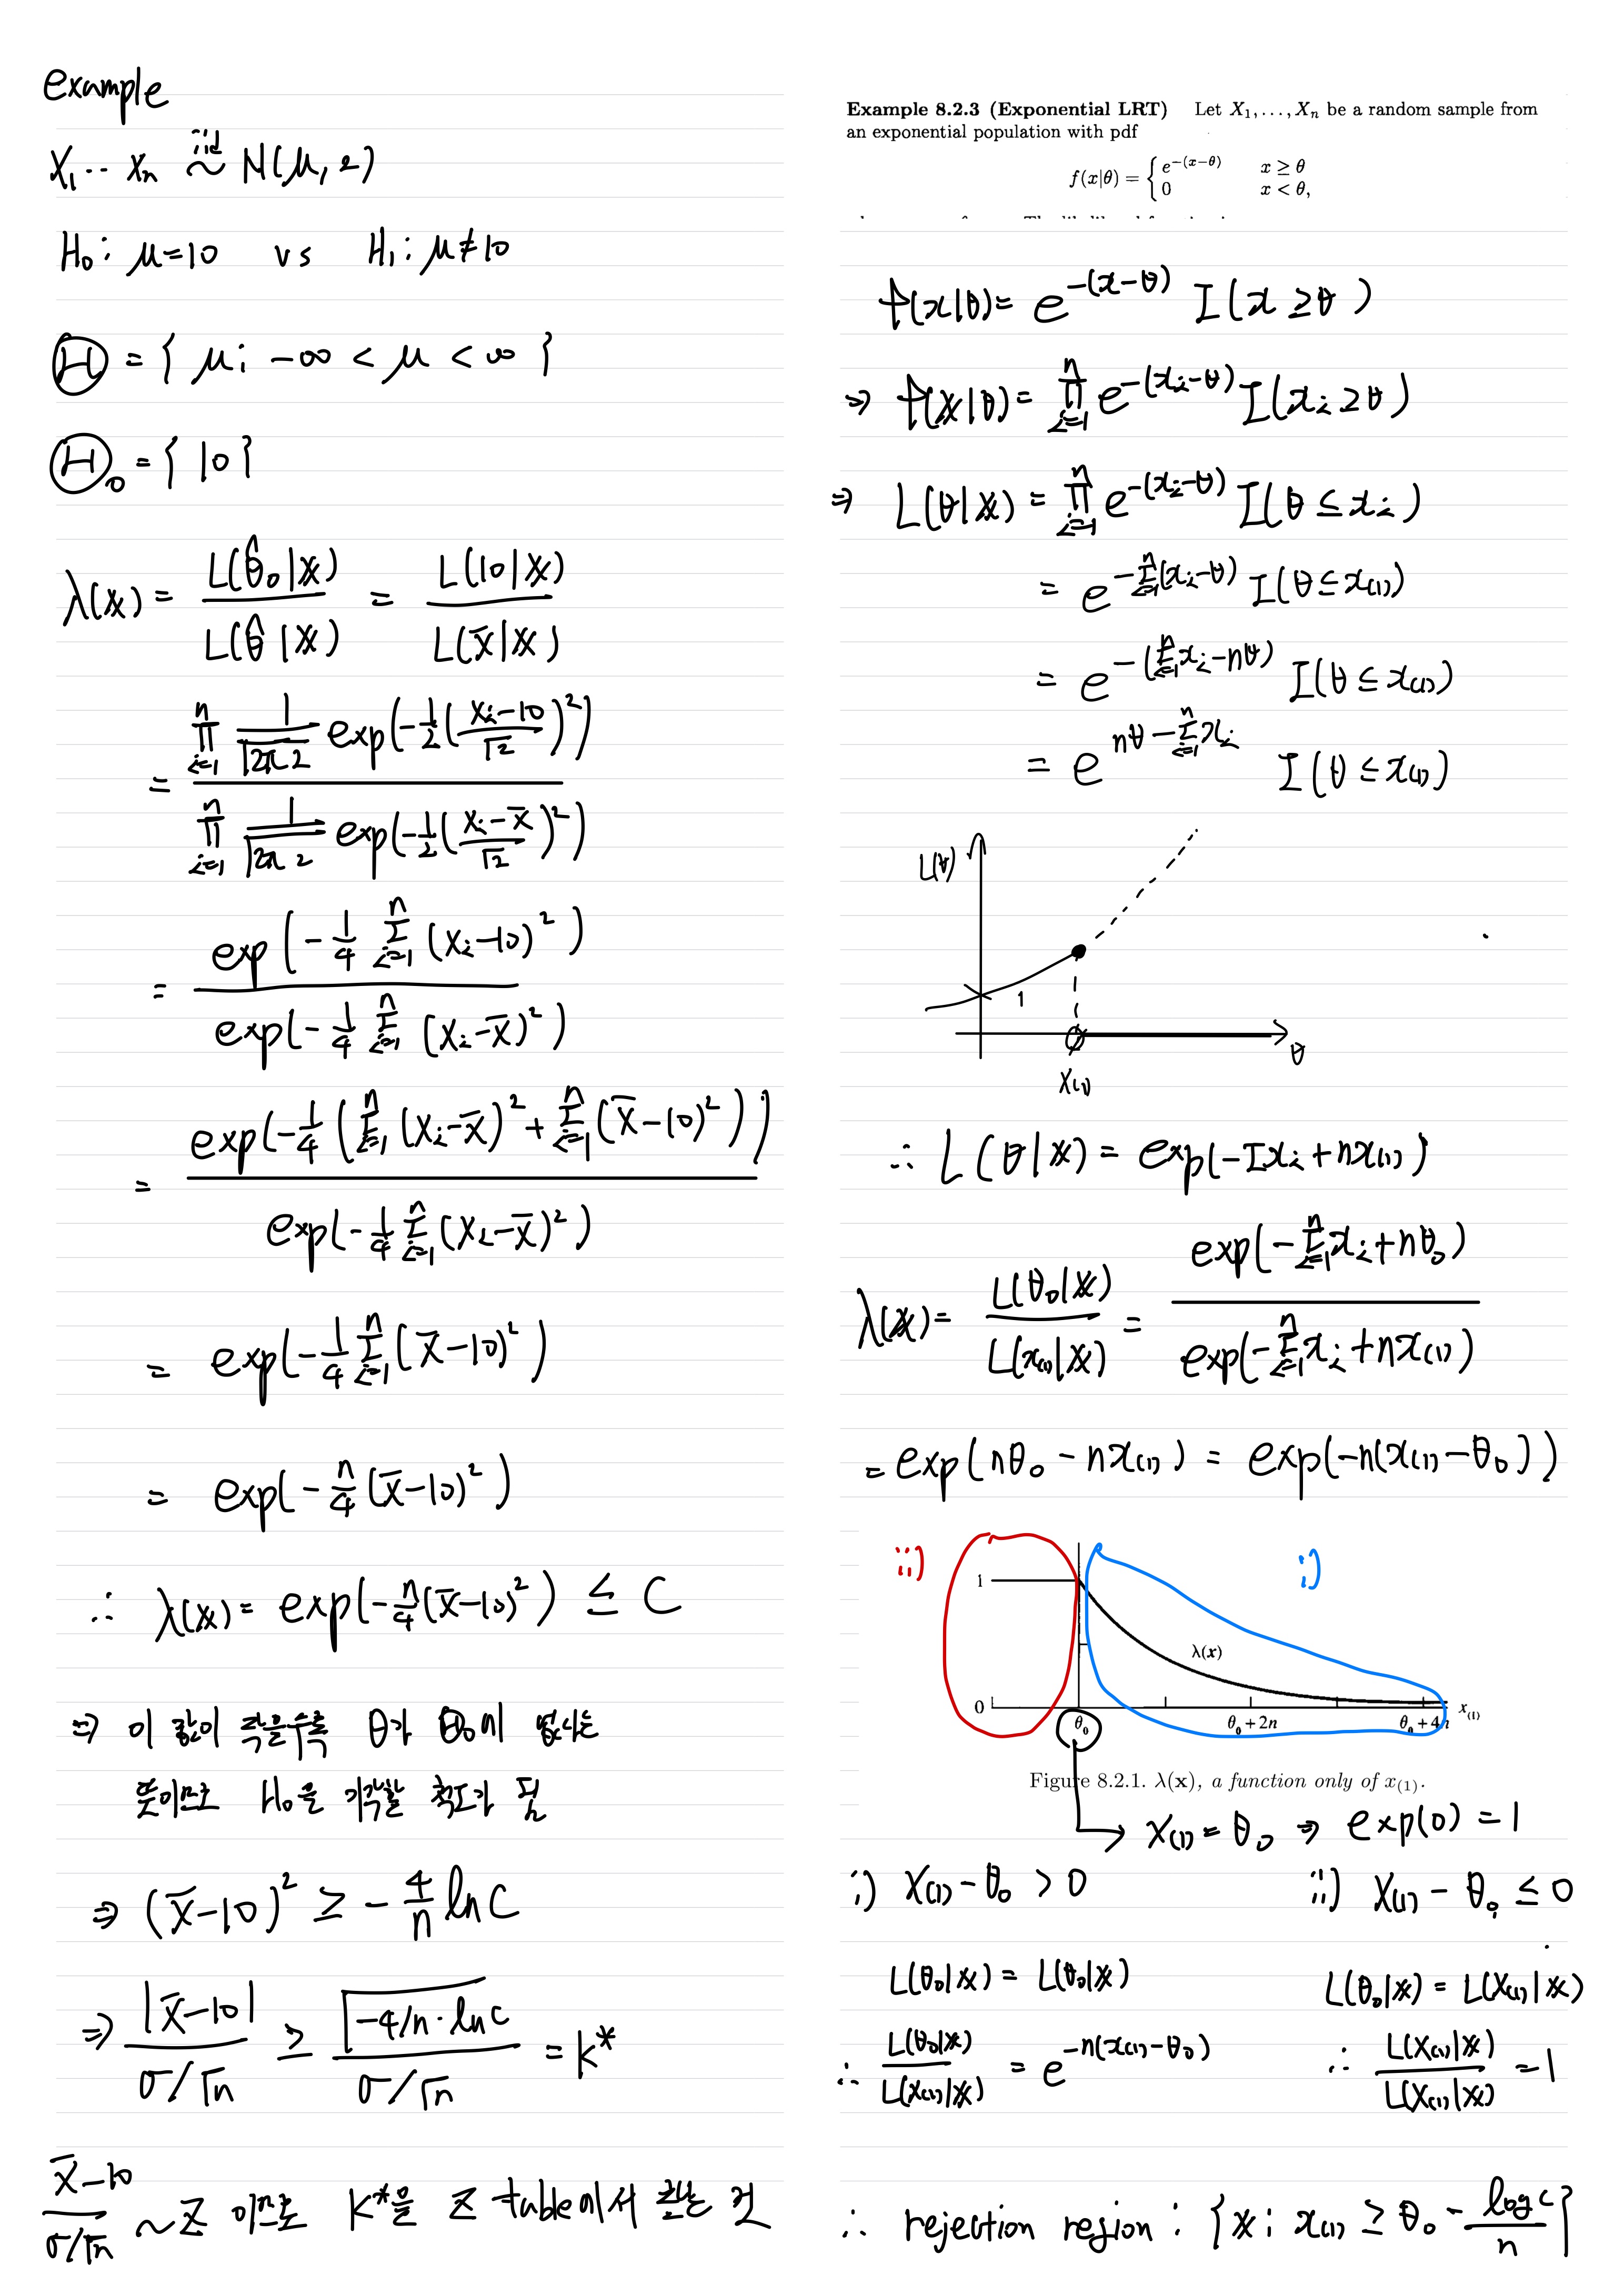 example
X₁ ... Xₙ iid ~ N(μ, 2)
H₀ : μ=10 vs H₁ : μ≠10
Ⓗ = { μ ; -∞ < μ < ∞ }
Ⓗ₀ = { 10 }
λ(𝕩) = L(θ̂₀|𝕩) / L(θ̂|𝕩) = L(10|𝕩) / L(x̄|𝕩)
= ∏ᵢ₌₁ⁿ 1/√(2π2) exp(-1/2((xᵢ-10)/√2)²) / ∏ᵢ₌₁ⁿ 1/√(2π2) exp(-1/2((xᵢ-x̄)/√2)²)
= exp(-1/4 Σᵢ₌₁ⁿ (xᵢ-10)²) / exp(-1/4 Σᵢ₌₁ⁿ (xᵢ-x̄)²)
= exp(-1/4 (Σᵢ₌₁ⁿ (xᵢ-x̄)² + Σᵢ₌₁ⁿ (x̄-10)²)) / exp(-1/4 Σᵢ₌₁ⁿ (xᵢ-x̄)²)
= exp(-1/4 Σᵢ₌₁ⁿ (x̄-10)²)
= exp(-n/4 (x̄-10)²)
∴ λ(𝕩) = exp(-n/4 (x̄-10)²) ≤ C
⇒ 이 값이 작을수록 θ가 Ⓗ₀에 없다는
뜻이므로 H₀을 기각할 척도가 됨
⇒ (x̄-10)² ≥ -4/n ln C
⇒ |x̄-10| / (σ/√n) ≥ √(-4/n · ln c) / (σ/√n) = k*
(x̄-10) / (σ/√n) ~ Z 이므로 k*을 Z table에서 찾는 것
Example 8.2.3 (Exponential LRT) Let X₁, . . . , Xₙ be a random sample from
an exponential population with pdf
f(x|θ) = { e^{-(x-θ)} x ≥ θ
0 x < θ,
f(x|θ) = e^{-(x-θ)} I(x ≥ θ)
⇒ f(𝕩|θ) = ∏ᵢ₌₁ⁿ e^{-(xᵢ-θ)} I(xᵢ ≥ θ)
⇒ L(θ|𝕩) = ∏ᵢ₌₁ⁿ e^{-(xᵢ-θ)} I(θ ≤ xᵢ)
= e^{-Σᵢ₌₁ⁿ(xᵢ-θ)} I(θ ≤ x₍₁₎)
= e^{-(Σᵢ₌₁ⁿ xᵢ-nθ)} I(θ ≤ x₍₁₎)
= e^{nθ-Σᵢ₌₁ⁿ xᵢ} I(θ ≤ x₍₁₎)
L(θ)
1
θ
X₍₁₎
∴ L(θ|𝕩) = exp(-Σxᵢ+nx₍₁₎)
λ(𝕩) = L(θ₀|𝕩) / L(x₍₁₎|𝕩) = exp(-Σᵢ₌₁ⁿ xᵢ+nθ₀) / exp(-Σᵢ₌₁ⁿ xᵢ+nx₍₁₎)
= exp(nθ₀ - nx₍₁₎) = exp(-n(x₍₁₎-θ₀))
ii) i)
1
λ(x)
0
x₍₁₎
θ₀ θ₀ + 2n θ₀ + 4n
Figure 8.2.1. λ(x), a function only of x₍₁₎.
→ X₍₁₎ = θ₀ ⇒ exp(0) = 1
i) X₍₁₎ - θ₀ > 0 ii) X₍₁₎ - θ₀ ≤ 0
L(θ₀|𝕩) = L(θ₀|𝕩) L(θ₀|𝕩) = L(X₍₁₎|𝕩)
∴ L(θ₀|𝕩) / L(X₍₁₎|𝕩) = e^{-n(x₍₁₎-θ₀)} ∴ L(X₍₁₎|𝕩) / L(X₍₁₎|𝕩) = 1
∴ rejection region : {𝕩 : x₍₁₎ ≥ θ₀ - log c / n}